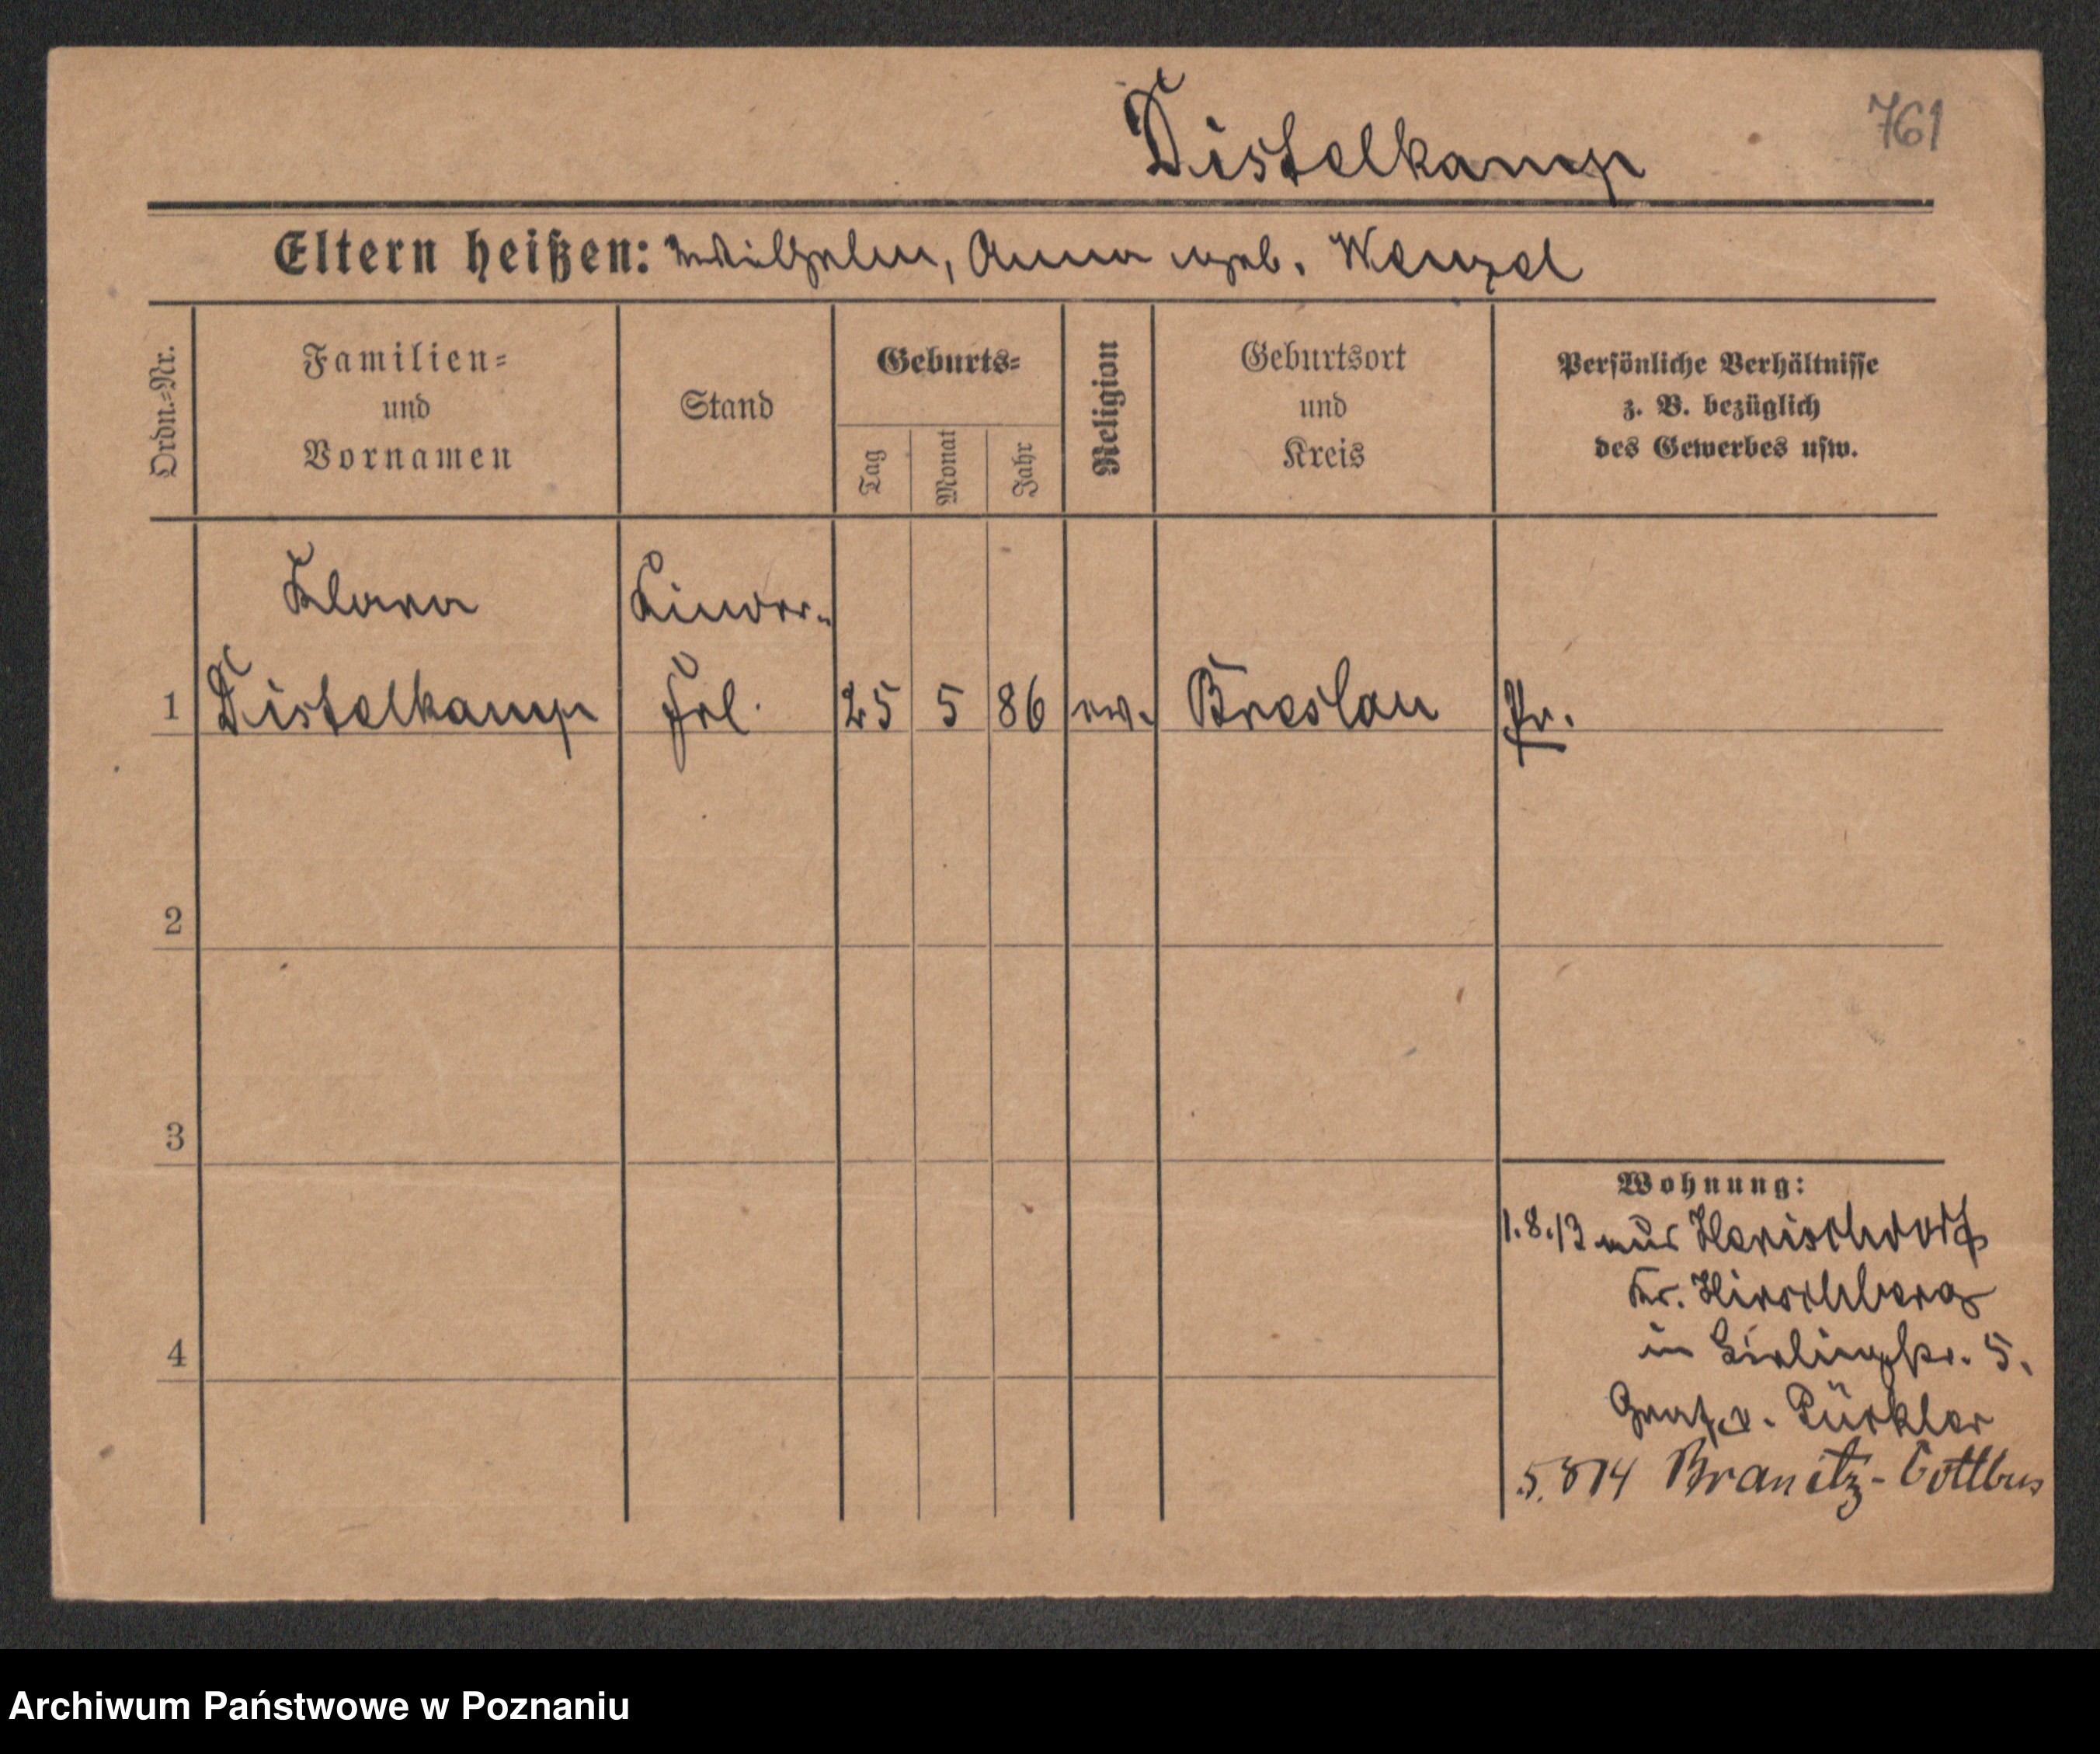 Distelkamp
761
Eltern heißen: Wilhelm, Anna geb. Wenzel
Ordn.-Nr.
Familien-
und
Vornamen
Stand
Geburts-
Tag
Monat
Jahr
Religion
Geburtsort
und
Kreis
Persönliche Verhältnisse
z. B. bezüglich
des Gewerbes usw.
Klara
Kinder-
1 Distelkamp Frl. 25 5 86 ev. Breslau Pr.
2
3
4
Wohnung:
1.8.13 aus Herischdorf
Kr. Hirschberg
in 5.
Graf v. Pückler
5.8 14 Branitz-Cottbus
Archiwum Państwowe w Poznaniu